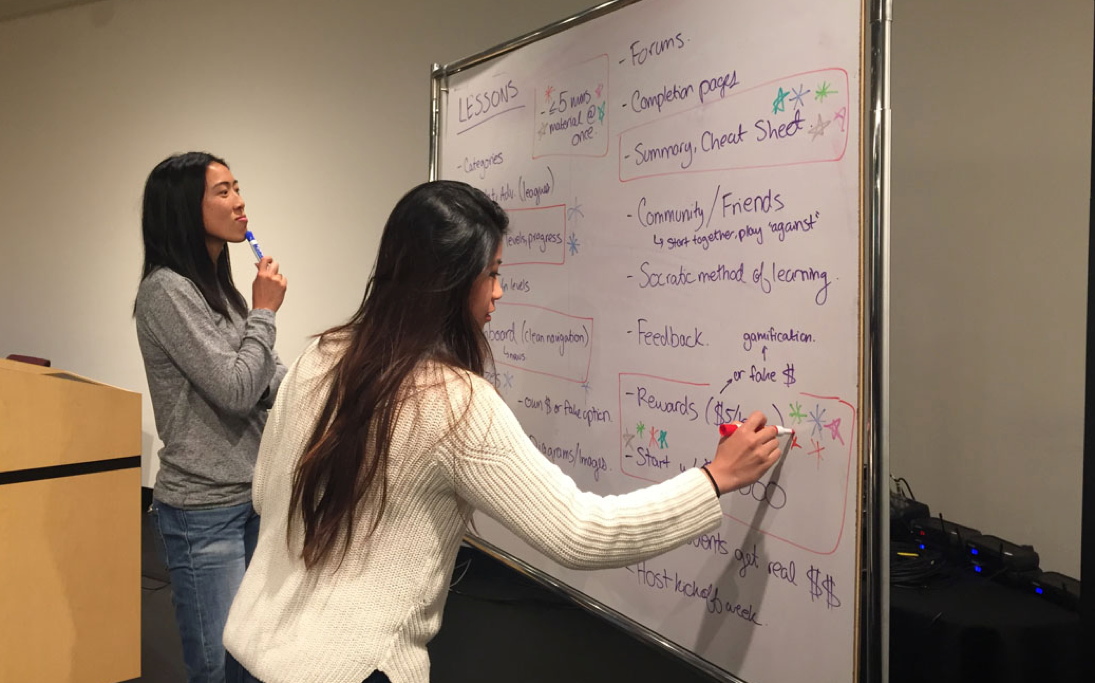 LESSONS
- ≤5 mins
material @
once
- Categories
Adv. (leagues)
levels, progress
levels
board (clean navigation)
↳ news
- own $ or fake option.
Diagrams/Images.
- Forums.
- Completion pages
- Summary, Cheat Sheet.
- Community/Friends
↳ start together, play "against"
- Socratic method of learning.
- Feedback.
gamification.
or fake $
- Rewards ($5/
- Start
get real $$
Host kickoff week